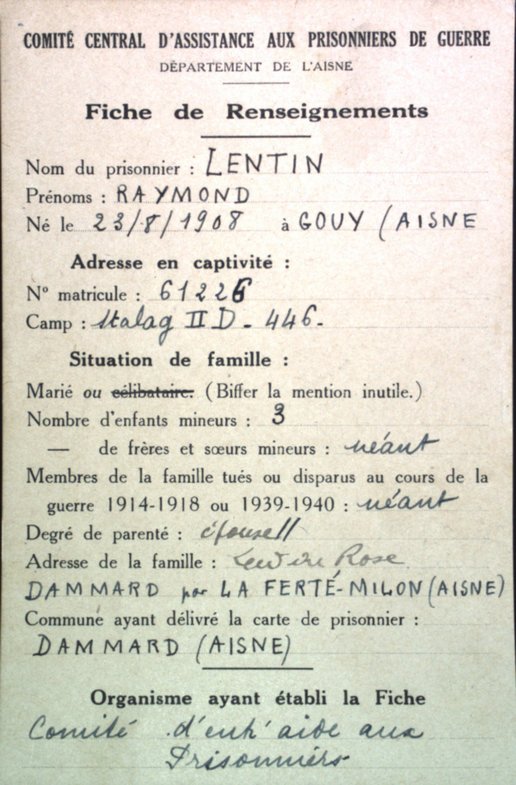 COMITÉ CENTRAL D'ASSISTANCE AUX PRISONNIERS DE GUERRE
DÉPARTEMENT DE L'AISNE
Fiche de Renseignements
Nom du prisonnier : LENTIN
Prénoms : RAYMOND
Né le 23/8/1908 à GOUY (AISNE
Adresse en captivité :
N° matricule : 61226
Camp : Stalag II D - 446 -
Situation de famille :
Marié ou célibataire. (Biffer la mention inutile.)
Nombre d'enfants mineurs : 3
— de frères et sœurs mineurs : néant
Membres de la famille tués ou disparus au cours de la
guerre 1914-1918 ou 1939-1940 : néant
Degré de parenté : épouse
Adresse de la famille : Rose
DAMMARD par LA FERTÉ-MILON (AISNE)
Commune ayant délivré la carte de prisonnier :
DAMMARD (AISNE)
Organisme ayant établi la Fiche
Comité d'entr'aide aux
Prisonniers